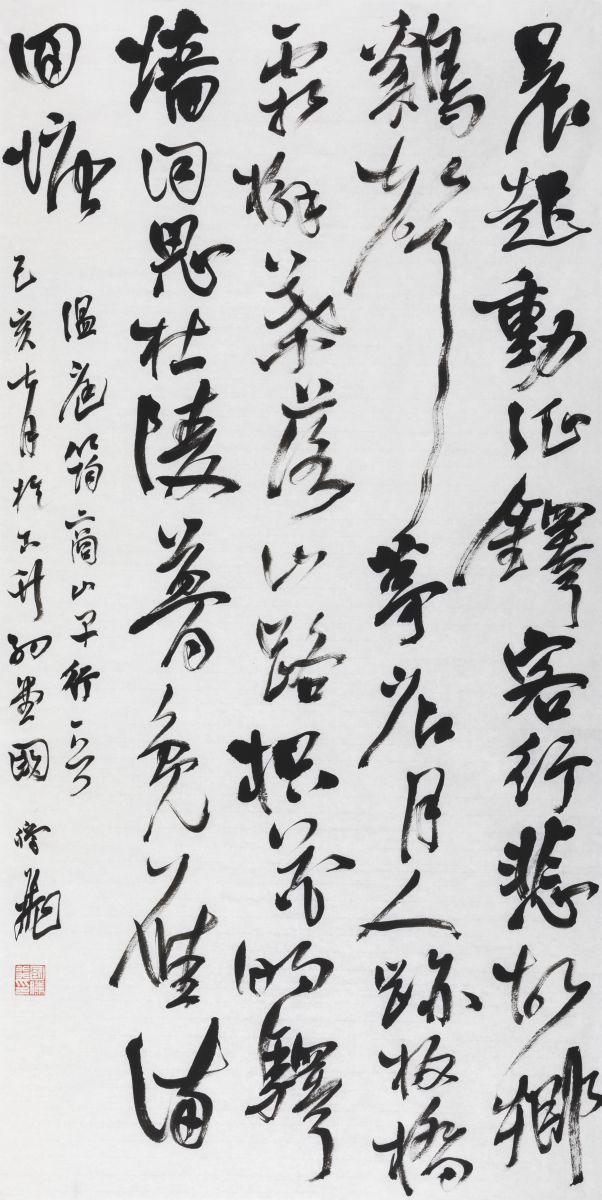 晨起動征鐸客行悲故鄉
鷄聲茅店月人跡板橋
霜槲葉落山路枳花明驛
墻因思杜陵夢鳧雁滿
回塘
溫庭筠商山早行一首
己亥七月於